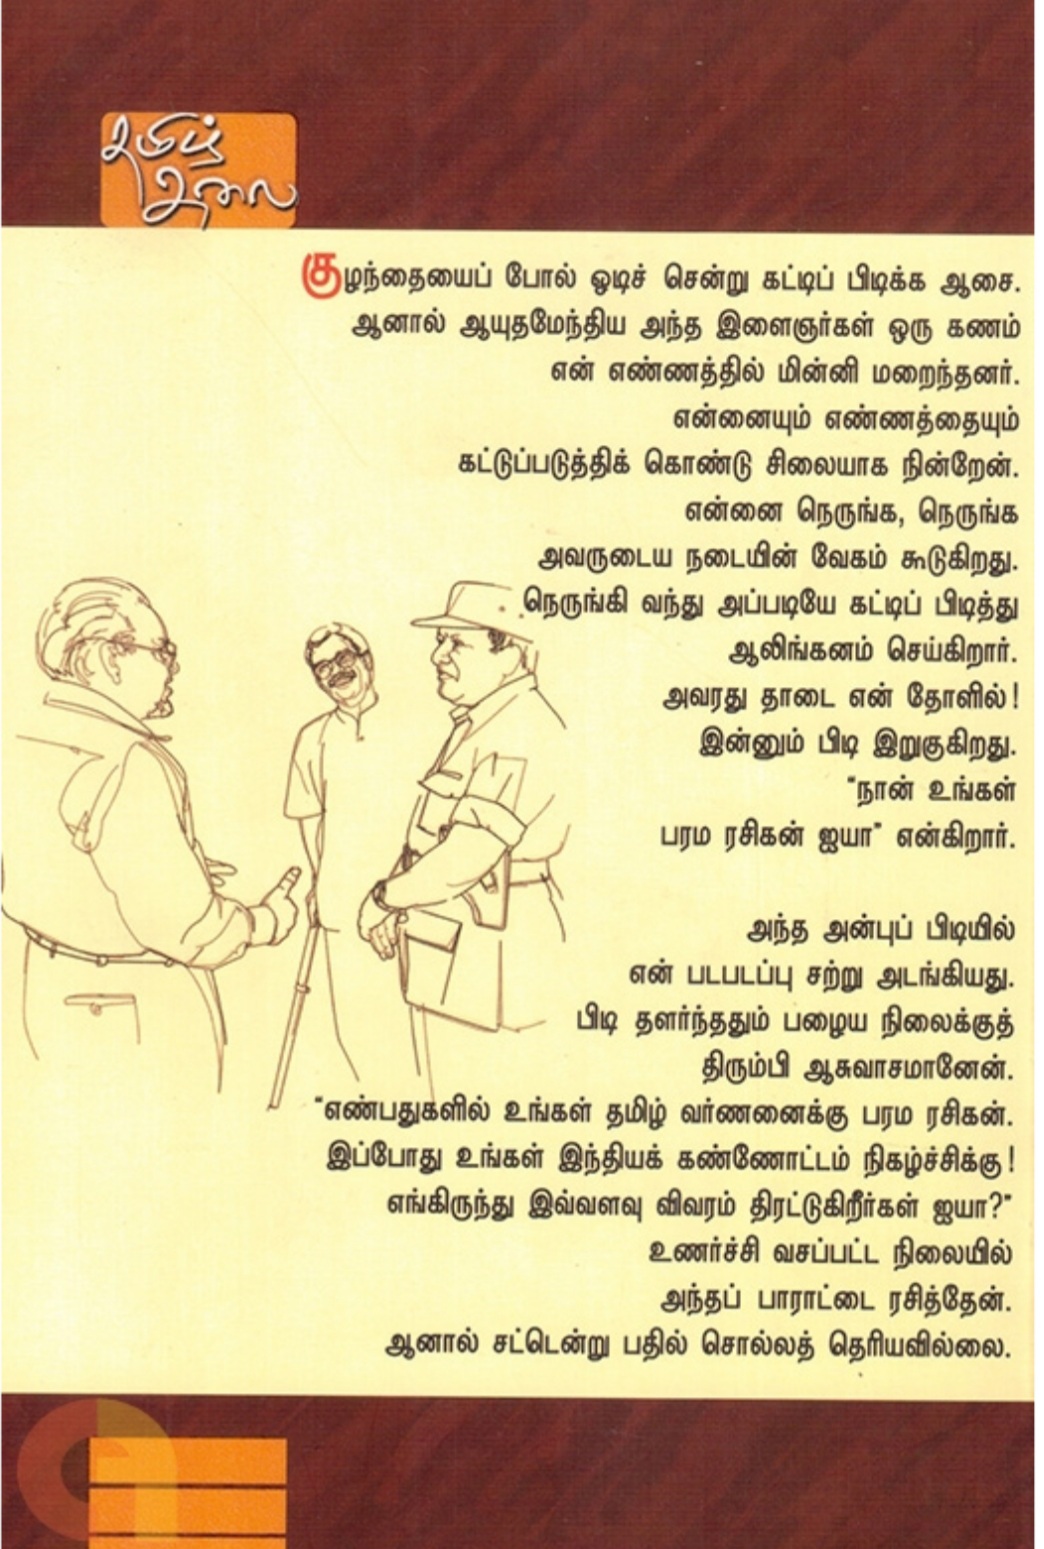 தமிழ்
அலை
குழந்தையைப் போல் ஓடிச் சென்று கட்டிப் பிடிக்க ஆசை.
ஆனால் ஆயுதமேந்திய அந்த இளைஞர்கள் ஒரு கணம்
என் எண்ணத்தில் மின்னி மறைந்தனர்.
என்னையும் எண்ணத்தையும்
கட்டுப்படுத்திக் கொண்டு சிலையாக நின்றேன்.
என்னை நெருங்க, நெருங்க
அவருடைய நடையின் வேகம் கூடுகிறது.
நெருங்கி வந்து அப்படியே கட்டிப் பிடித்து
ஆலிங்கனம் செய்கிறார்.
அவரது தாடை என் தோளில்!
இன்னும் பிடி இறுகுகிறது.
"நான் உங்கள்
பரம ரசிகன் ஐயா" என்கிறார்.
அந்த அன்புப் பிடியில்
என் படபடப்பு சற்று அடங்கியது.
பிடி தளர்ந்ததும் பழைய நிலைக்குத்
திரும்பி ஆசுவாசமானேன்.
"எண்பதுகளில் உங்கள் தமிழ் வர்ணனைக்கு பரம ரசிகன்.
இப்போது உங்கள் இந்தியக் கண்ணோட்டம் நிகழ்ச்சிக்கு!
எங்கிருந்து இவ்வளவு விவரம் திரட்டுகிறீர்கள் ஐயா?"
உணர்ச்சி வசப்பட்ட நிலையில்
அந்தப் பாராட்டை ரசித்தேன்.
ஆனால் சட்டென்று பதில் சொல்லத் தெரியவில்லை.